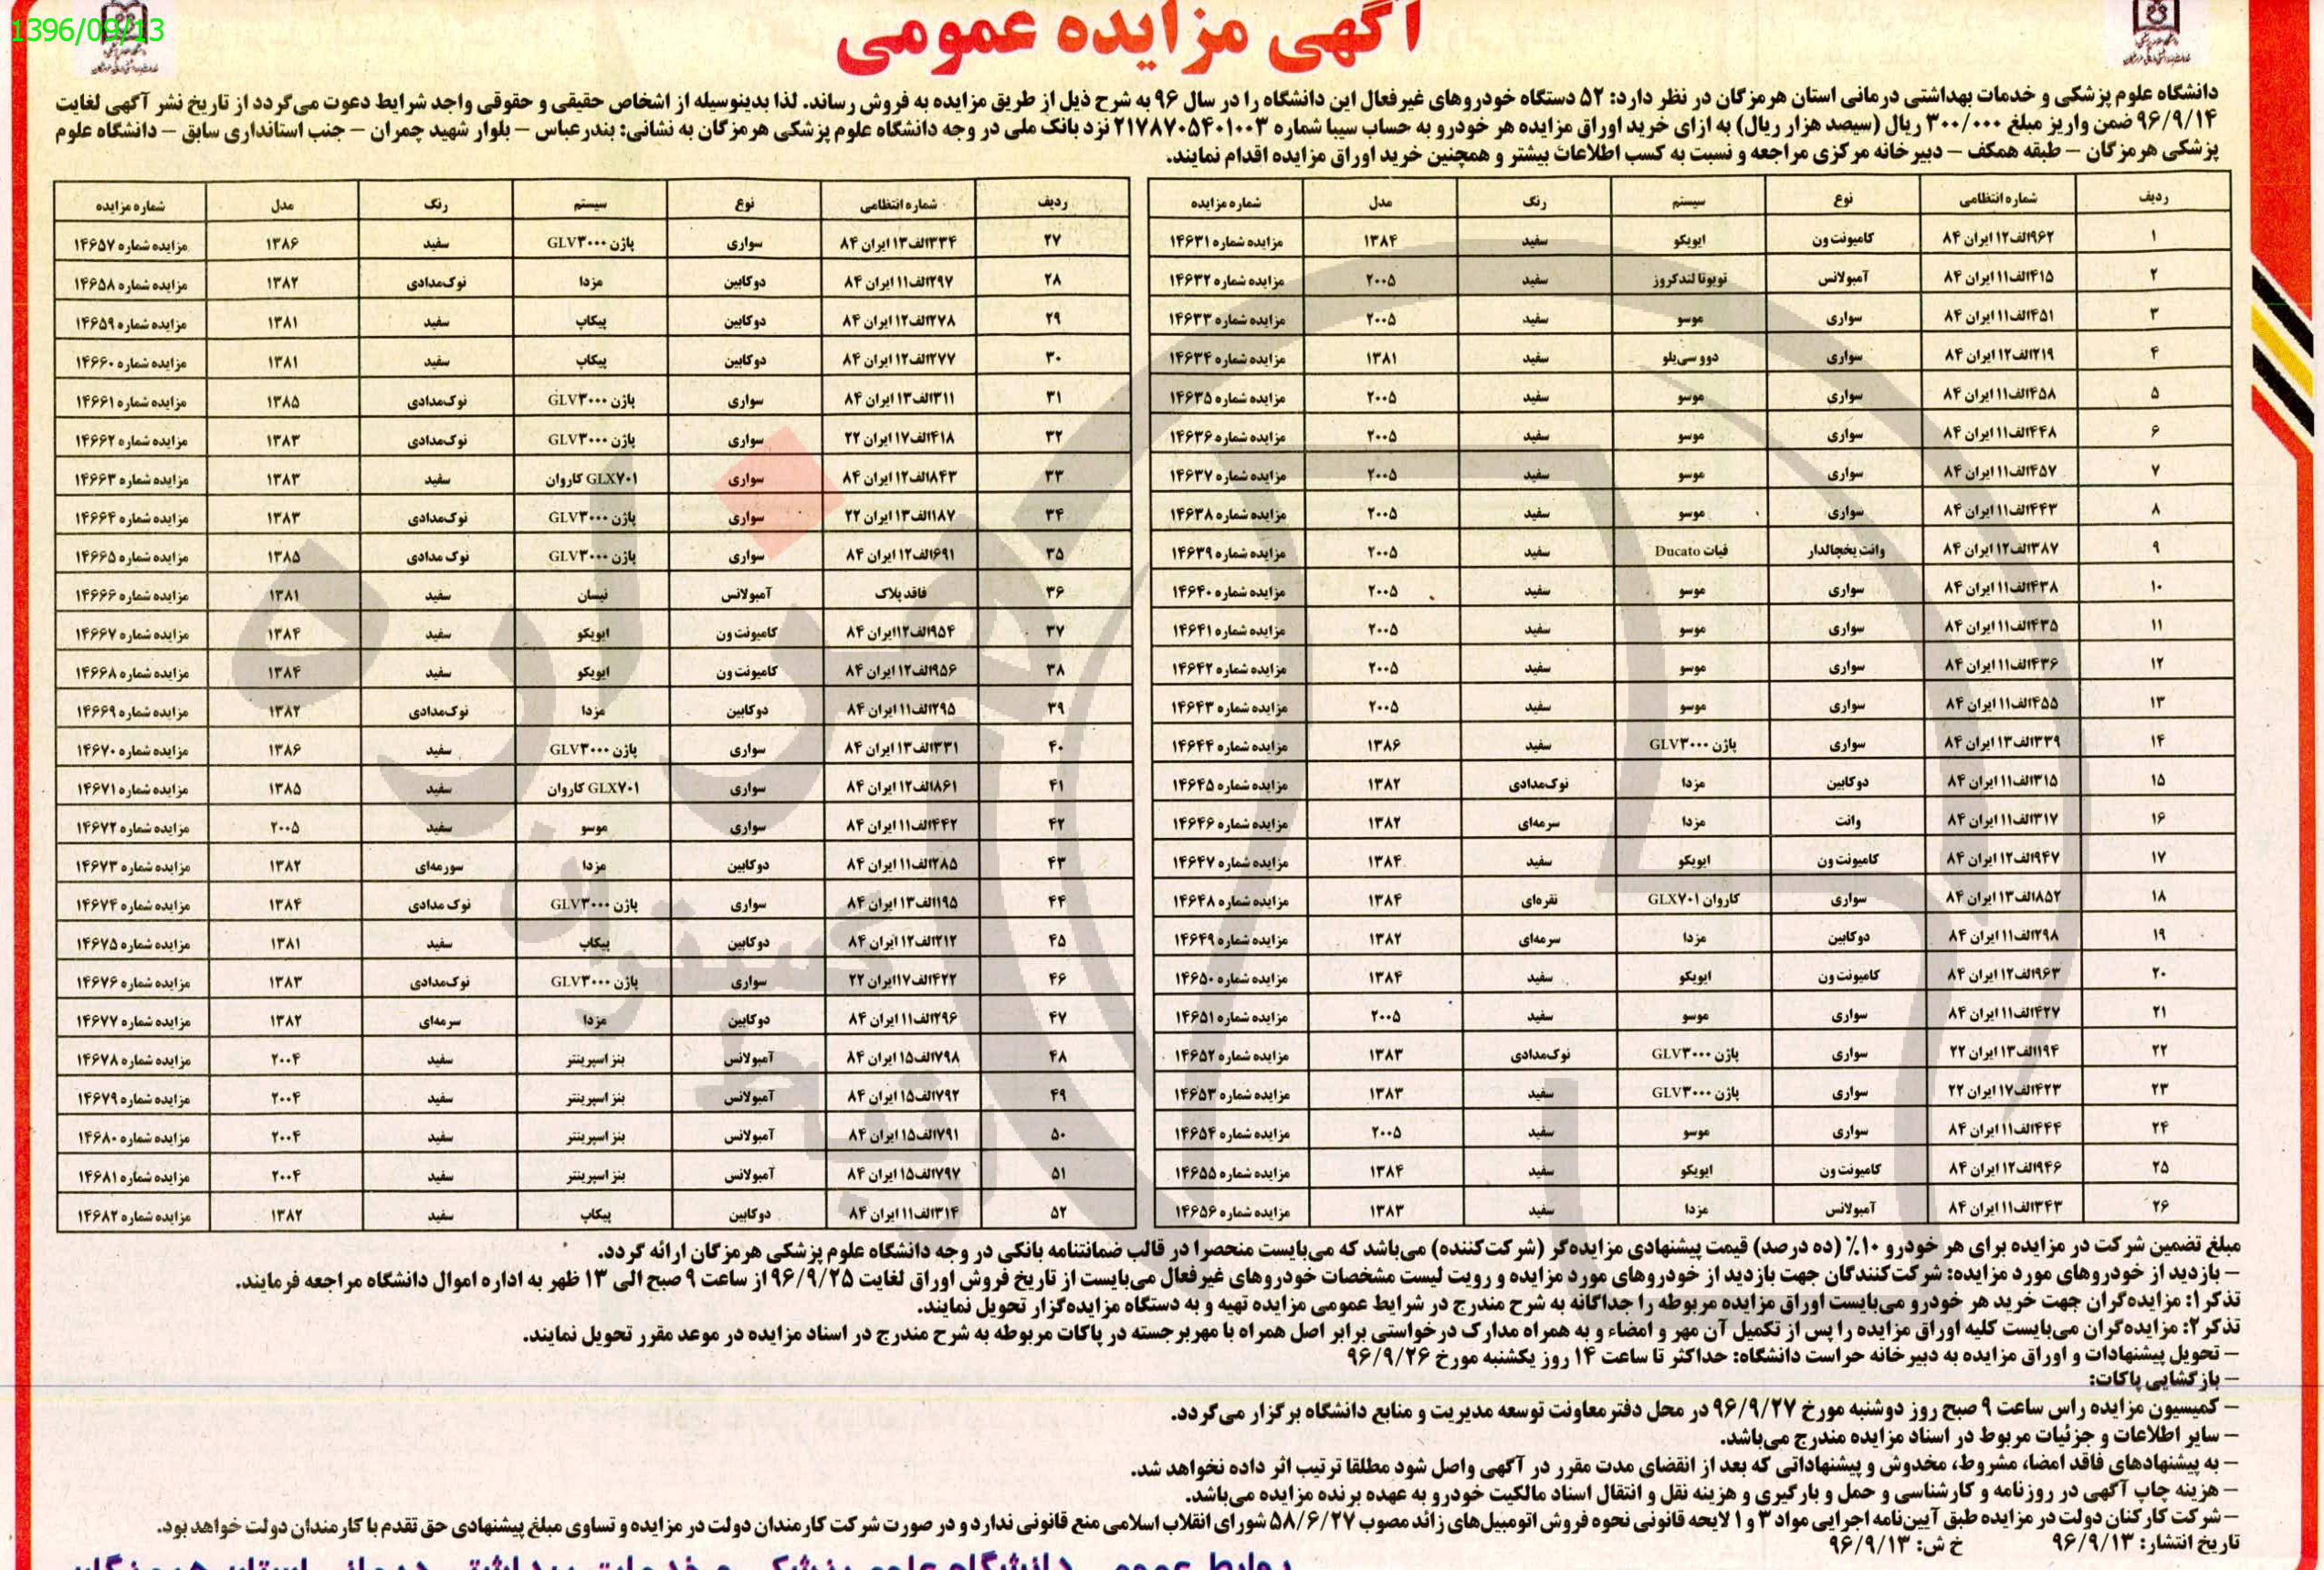 1396/09/13
آگهی مزایده عمومی
دانشگاه علوم پزشکی و خدمات بهداشتی درمانی استان هرمزگان در نظر دارد: ۵۲ دستگاه خودروهای غیرفعال این دانشگاه را در سال ۹۶ به شرح ذیل از طریق مزایده به فروش رساند. لذا بدینوسیله از اشخاص حقیقی و حقوقی واجد شرایط دعوت می‌گردد از تاریخ نشر آگهی لغایت
۹۶/۹/۱۴ ضمن واریز مبلغ ۳۰۰/۰۰۰ ریال (سیصد هزار ریال) به ازای خرید اوراق مزایده هر خودرو به حساب سیبا شماره ۲۱۷۸۷۰۵۴۰۱۰۰۳ نزد بانک ملی در وجه دانشگاه علوم پزشکی هرمزگان به نشانی: بندرعباس – بلوار شهید چمران – جنب استانداری سابق – دانشگاه علوم
پزشکی هرمزگان – طبقه همکف – دبیرخانه مرکزی مراجعه و نسبت به کسب اطلاعات بیشتر و همچنین خرید اوراق مزایده اقدام نمایند.
ردیف شماره انتظامی نوع سیستم رنگ مدل شماره مزایده
۱ ۹۶۲الف۱۲ ایران ۸۴ کامیونت ون ایویکو سفید ۱۳۸۴ مزایده شماره ۱۴۶۳۱
۲ ۴۱۵الف۱۱ ایران ۸۴ آمبولانس تویوتا لندکروز سفید ۲۰۰۵ مزایده شماره ۱۴۶۳۲
۳ ۴۵۱الف۱۱ ایران ۸۴ سواری موسو سفید ۲۰۰۵ مزایده شماره ۱۴۶۳۳
۴ ۲۱۹الف۱۲ ایران ۸۴ سواری دوو سی‌یلو سفید ۱۳۸۱ مزایده شماره ۱۴۶۳۴
۵ ۴۵۸الف۱۱ ایران ۸۴ سواری موسو سفید ۲۰۰۵ مزایده شماره ۱۴۶۳۵
۶ ۴۴۸الف۱۱ ایران ۸۴ سواری موسو سفید ۲۰۰۵ مزایده شماره ۱۴۶۳۶
۷ ۴۵۷الف۱۱ ایران ۸۴ سواری موسو سفید ۲۰۰۵ مزایده شماره ۱۴۶۳۷
۸ ۴۴۳الف۱۱ ایران ۸۴ سواری موسو سفید ۲۰۰۵ مزایده شماره ۱۴۶۳۸
۹ ۳۸۷الف۱۲ ایران ۸۴ وانت یخچالدار فیات Ducato سفید ۲۰۰۵ مزایده شماره ۱۴۶۳۹
۱۰ ۴۳۸الف۱۱ ایران ۸۴ سواری موسو سفید ۲۰۰۵ مزایده شماره ۱۴۶۴۰
۱۱ ۴۳۵الف۱۱ ایران ۸۴ سواری موسو سفید ۲۰۰۵ مزایده شماره ۱۴۶۴۱
۱۲ ۴۳۶الف۱۱ ایران ۸۴ سواری موسو سفید ۲۰۰۵ مزایده شماره ۱۴۶۴۲
۱۳ ۴۵۵الف۱۱ ایران ۸۴ سواری موسو سفید ۲۰۰۵ مزایده شماره ۱۴۶۴۳
۱۴ ۳۳۹الف۱۳ ایران ۸۴ سواری پاژن GLV۳۰۰۰ سفید ۱۳۸۶ مزایده شماره ۱۴۶۴۴
۱۵ ۳۱۵الف۱۱ ایران ۸۴ دوکابین مزدا نوک‌مدادی ۱۳۸۲ مزایده شماره ۱۴۶۴۵
۱۶ ۳۱۷الف۱۱ ایران ۸۴ وانت مزدا سرمه‌ای ۱۳۸۲ مزایده شماره ۱۴۶۴۶
۱۷ ۹۴۷الف۱۲ ایران ۸۴ کامیونت ون ایویکو سفید ۱۳۸۴ مزایده شماره ۱۴۶۴۷
۱۸ ۸۵۲الف۱۳ ایران ۸۴ سواری کاروان GLX۷۰۱ نقره‌ای ۱۳۸۴ مزایده شماره ۱۴۶۴۸
۱۹ ۲۹۸الف۱۱ ایران ۸۴ دوکابین مزدا سرمه‌ای ۱۳۸۲ مزایده شماره ۱۴۶۴۹
۲۰ ۹۶۳الف۱۲ ایران ۸۴ کامیونت ون ایویکو سفید ۱۳۸۴ مزایده شماره ۱۴۶۵۰
۲۱ ۴۲۷الف۱۱ ایران ۸۴ سواری موسو سفید ۲۰۰۵ مزایده شماره ۱۴۶۵۱
۲۲ ۱۹۴الف۱۳ ایران ۲۲ سواری پاژن GLV۳۰۰۰ نوک‌مدادی ۱۳۸۳ مزایده شماره ۱۴۶۵۲
۲۳ ۴۲۳الف۱۷ ایران ۲۲ سواری پاژن GLV۳۰۰۰ سفید ۱۳۸۳ مزایده شماره ۱۴۶۵۳
۲۴ ۴۴۴الف۱۱ ایران ۸۴ سواری موسو سفید ۲۰۰۵ مزایده شماره ۱۴۶۵۴
۲۵ ۹۴۶الف۱۲ ایران ۸۴ کامیونت ون ایویکو سفید ۱۳۸۴ مزایده شماره ۱۴۶۵۵
۲۶ ۳۴۳الف۱۱ ایران ۸۴ آمبولانس مزدا سفید ۱۳۸۳ مزایده شماره ۱۴۶۵۶
ردیف شماره انتظامی نوع سیستم رنگ مدل شماره مزایده
۲۷ ۳۳۴الف۱۳ ایران ۸۴ سواری پاژن GLV۳۰۰۰ سفید ۱۳۸۶ مزایده شماره ۱۴۶۵۷
۲۸ ۲۹۷الف۱۱ ایران ۸۴ دوکابین مزدا نوک‌مدادی ۱۳۸۲ مزایده شماره ۱۴۶۵۸
۲۹ ۲۷۸الف۱۲ ایران ۸۴ دوکابین پیکاپ سفید ۱۳۸۱ مزایده شماره ۱۴۶۵۹
۳۰ ۲۷۷الف۱۲ ایران ۸۴ دوکابین پیکاپ سفید ۱۳۸۱ مزایده شماره ۱۴۶۶۰
۳۱ ۳۱۱الف۱۳ ایران ۸۴ سواری پاژن GLV۳۰۰۰ نوک‌مدادی ۱۳۸۵ مزایده شماره ۱۴۶۶۱
۳۲ ۴۱۸الف۱۷ ایران ۲۲ سواری پاژن GLV۳۰۰۰ نوک‌مدادی ۱۳۸۳ مزایده شماره ۱۴۶۶۲
۳۳ ۸۴۳الف۱۲ ایران ۸۴ سواری GLX۷۰۱ کاروان سفید ۱۳۸۳ مزایده شماره ۱۴۶۶۳
۳۴ ۱۸۷الف۱۳ ایران ۲۲ سواری پاژن GLV۳۰۰۰ نوک‌مدادی ۱۳۸۳ مزایده شماره ۱۴۶۶۴
۳۵ ۶۹۱الف۱۲ ایران ۸۴ سواری پاژن GLV۳۰۰۰ نوک مدادی ۱۳۸۵ مزایده شماره ۱۴۶۶۵
۳۶ فاقد پلاک آمبولانس نیسان سفید ۱۳۸۱ مزایده شماره ۱۴۶۶۶
۳۷ ۹۵۴الف۱۲ایران ۸۴ کامیونت ون ایویکو سفید ۱۳۸۴ مزایده شماره ۱۴۶۶۷
۳۸ ۹۵۶الف۱۲ ایران ۸۴ کامیونت ون ایویکو سفید ۱۳۸۴ مزایده شماره ۱۴۶۶۸
۳۹ ۲۹۵الف۱۱ ایران ۸۴ دوکابین مزدا نوک‌مدادی ۱۳۸۲ مزایده شماره ۱۴۶۶۹
۴۰ ۳۳۱الف۱۳ ایران ۸۴ سواری پاژن GLV۳۰۰۰ سفید ۱۳۸۶ مزایده شماره ۱۴۶۷۰
۴۱ ۸۶۱الف۱۲ ایران ۸۴ سواری GLX۷۰۱ کاروان سفید ۱۳۸۵ مزایده شماره ۱۴۶۷۱
۴۲ ۴۴۲الف۱۱ ایران ۸۴ سواری موسو سفید ۲۰۰۵ مزایده شماره ۱۴۶۷۲
۴۳ ۲۸۵الف۱۱ ایران ۸۴ دوکابین مزدا سورمه‌ای ۱۳۸۲ مزایده شماره ۱۴۶۷۳
۴۴ ۱۹۵الف۱۳ ایران ۸۴ سواری پاژن GLV۳۰۰۰ نوک مدادی ۱۳۸۴ مزایده شماره ۱۴۶۷۴
۴۵ ۲۱۲الف۱۲ ایران ۸۴ دوکابین پیکاپ سفید ۱۳۸۱ مزایده شماره ۱۴۶۷۵
۴۶ ۴۲۲الف۱۷ایران ۲۲ سواری پاژن GLV۳۰۰۰ نوک‌مدادی ۱۳۸۳ مزایده شماره ۱۴۶۷۶
۴۷ ۲۹۶الف۱۱ ایران ۸۴ دوکابین مزدا سرمه‌ای ۱۳۸۲ مزایده شماره ۱۴۶۷۷
۴۸ ۷۹۸الف۱۵ ایران ۸۴ آمبولانس بنز اسپرینتر سفید ۲۰۰۴ مزایده شماره ۱۴۶۷۸
۴۹ ۷۹۲الف۱۵ ایران ۸۴ آمبولانس بنز اسپرینتر سفید ۲۰۰۴ مزایده شماره ۱۴۶۷۹
۵۰ ۷۹۱الف۱۵ ایران ۸۴ آمبولانس بنز اسپرینتر سفید ۲۰۰۴ مزایده شماره ۱۴۶۸۰
۵۱ ۷۹۷الف۱۵ ایران ۸۴ آمبولانس بنز اسپرینتر سفید ۲۰۰۴ مزایده شماره ۱۴۶۸۱
۵۲ ۳۱۴الف۱۱ ایران ۸۴ دوکابین پیکاپ سفید ۱۳۸۲ مزایده شماره ۱۴۶۸۲
مبلغ تضمین شرکت در مزایده برای هر خودرو ۱۰٪ (ده درصد) قیمت پیشنهادی مزایده‌گر (شرکت‌کننده) می‌باشد که می‌بایست منحصرا در قالب ضمانتنامه بانکی در وجه دانشگاه علوم پزشکی هرمزگان ارائه گردد.
– بازدید از خودروهای مورد مزایده: شرکت‌کنندگان جهت بازدید از خودروهای مورد مزایده و رویت لیست مشخصات خودروهای غیرفعال می‌بایست از تاریخ فروش اوراق لغایت ۹۶/۹/۲۵ از ساعت ۹ صبح الی ۱۳ ظهر به اداره اموال دانشگاه مراجعه فرمایند.
تذکر۱: مزایده‌گران جهت خرید هر خودرو می‌بایست اوراق مزایده مربوطه را جداگانه به شرح مندرج در شرایط عمومی مزایده تهیه و به دستگاه مزایده‌گزار تحویل نمایند.
تذکر۲: مزایده‌گران می‌بایست کلیه اوراق مزایده را پس از تکمیل آن مهر و امضاء و به همراه مدارک درخواستی برابر اصل همراه با مهربرجسته در پاکات مربوطه به شرح مندرج در اسناد مزایده در موعد مقرر تحویل نمایند.
– تحویل پیشنهادات و اوراق مزایده به دبیرخانه حراست دانشگاه: حداکثر تا ساعت ۱۴ روز یکشنبه مورخ ۹۶/۹/۲۶
– بازگشایی پاکات:
– کمیسیون مزایده راس ساعت ۹ صبح روز دوشنبه مورخ ۹۶/۹/۲۷ در محل دفتر معاونت توسعه مدیریت و منابع دانشگاه برگزار می‌گردد.
– سایر اطلاعات و جزئیات مربوط در اسناد مزایده مندرج می‌باشد.
– به پیشنهادهای فاقد امضا، مشروط، مخدوش و پیشنهاداتی که بعد از انقضای مدت مقرر در آگهی واصل شود مطلقا ترتیب اثر داده نخواهد شد.
– هزینه چاپ آگهی در روزنامه و کارشناسی و حمل و بارگیری و هزینه نقل و انتقال اسناد مالکیت خودرو به عهده برنده مزایده می‌باشد.
– شرکت کارکنان دولت در مزایده طبق آیین‌نامه اجرایی مواد ۳ و ۱ لایحه قانونی نحوه فروش اتومبیل‌های زائد مصوب ۵۸/۶/۲۷ شورای انقلاب اسلامی منع قانونی ندارد و در صورت شرکت کارمندان دولت در مزایده و تساوی مبلغ پیشنهادی حق تقدم با کارمندان دولت خواهد بود.
تاریخ انتشار: ۹۶/۹/۱۳ خ ش: ۹۶/۹/۱۳
روابط عمومی دانشگاه علوم پزشکی و خدمات بهداشتی درمانی استان هرمزگان